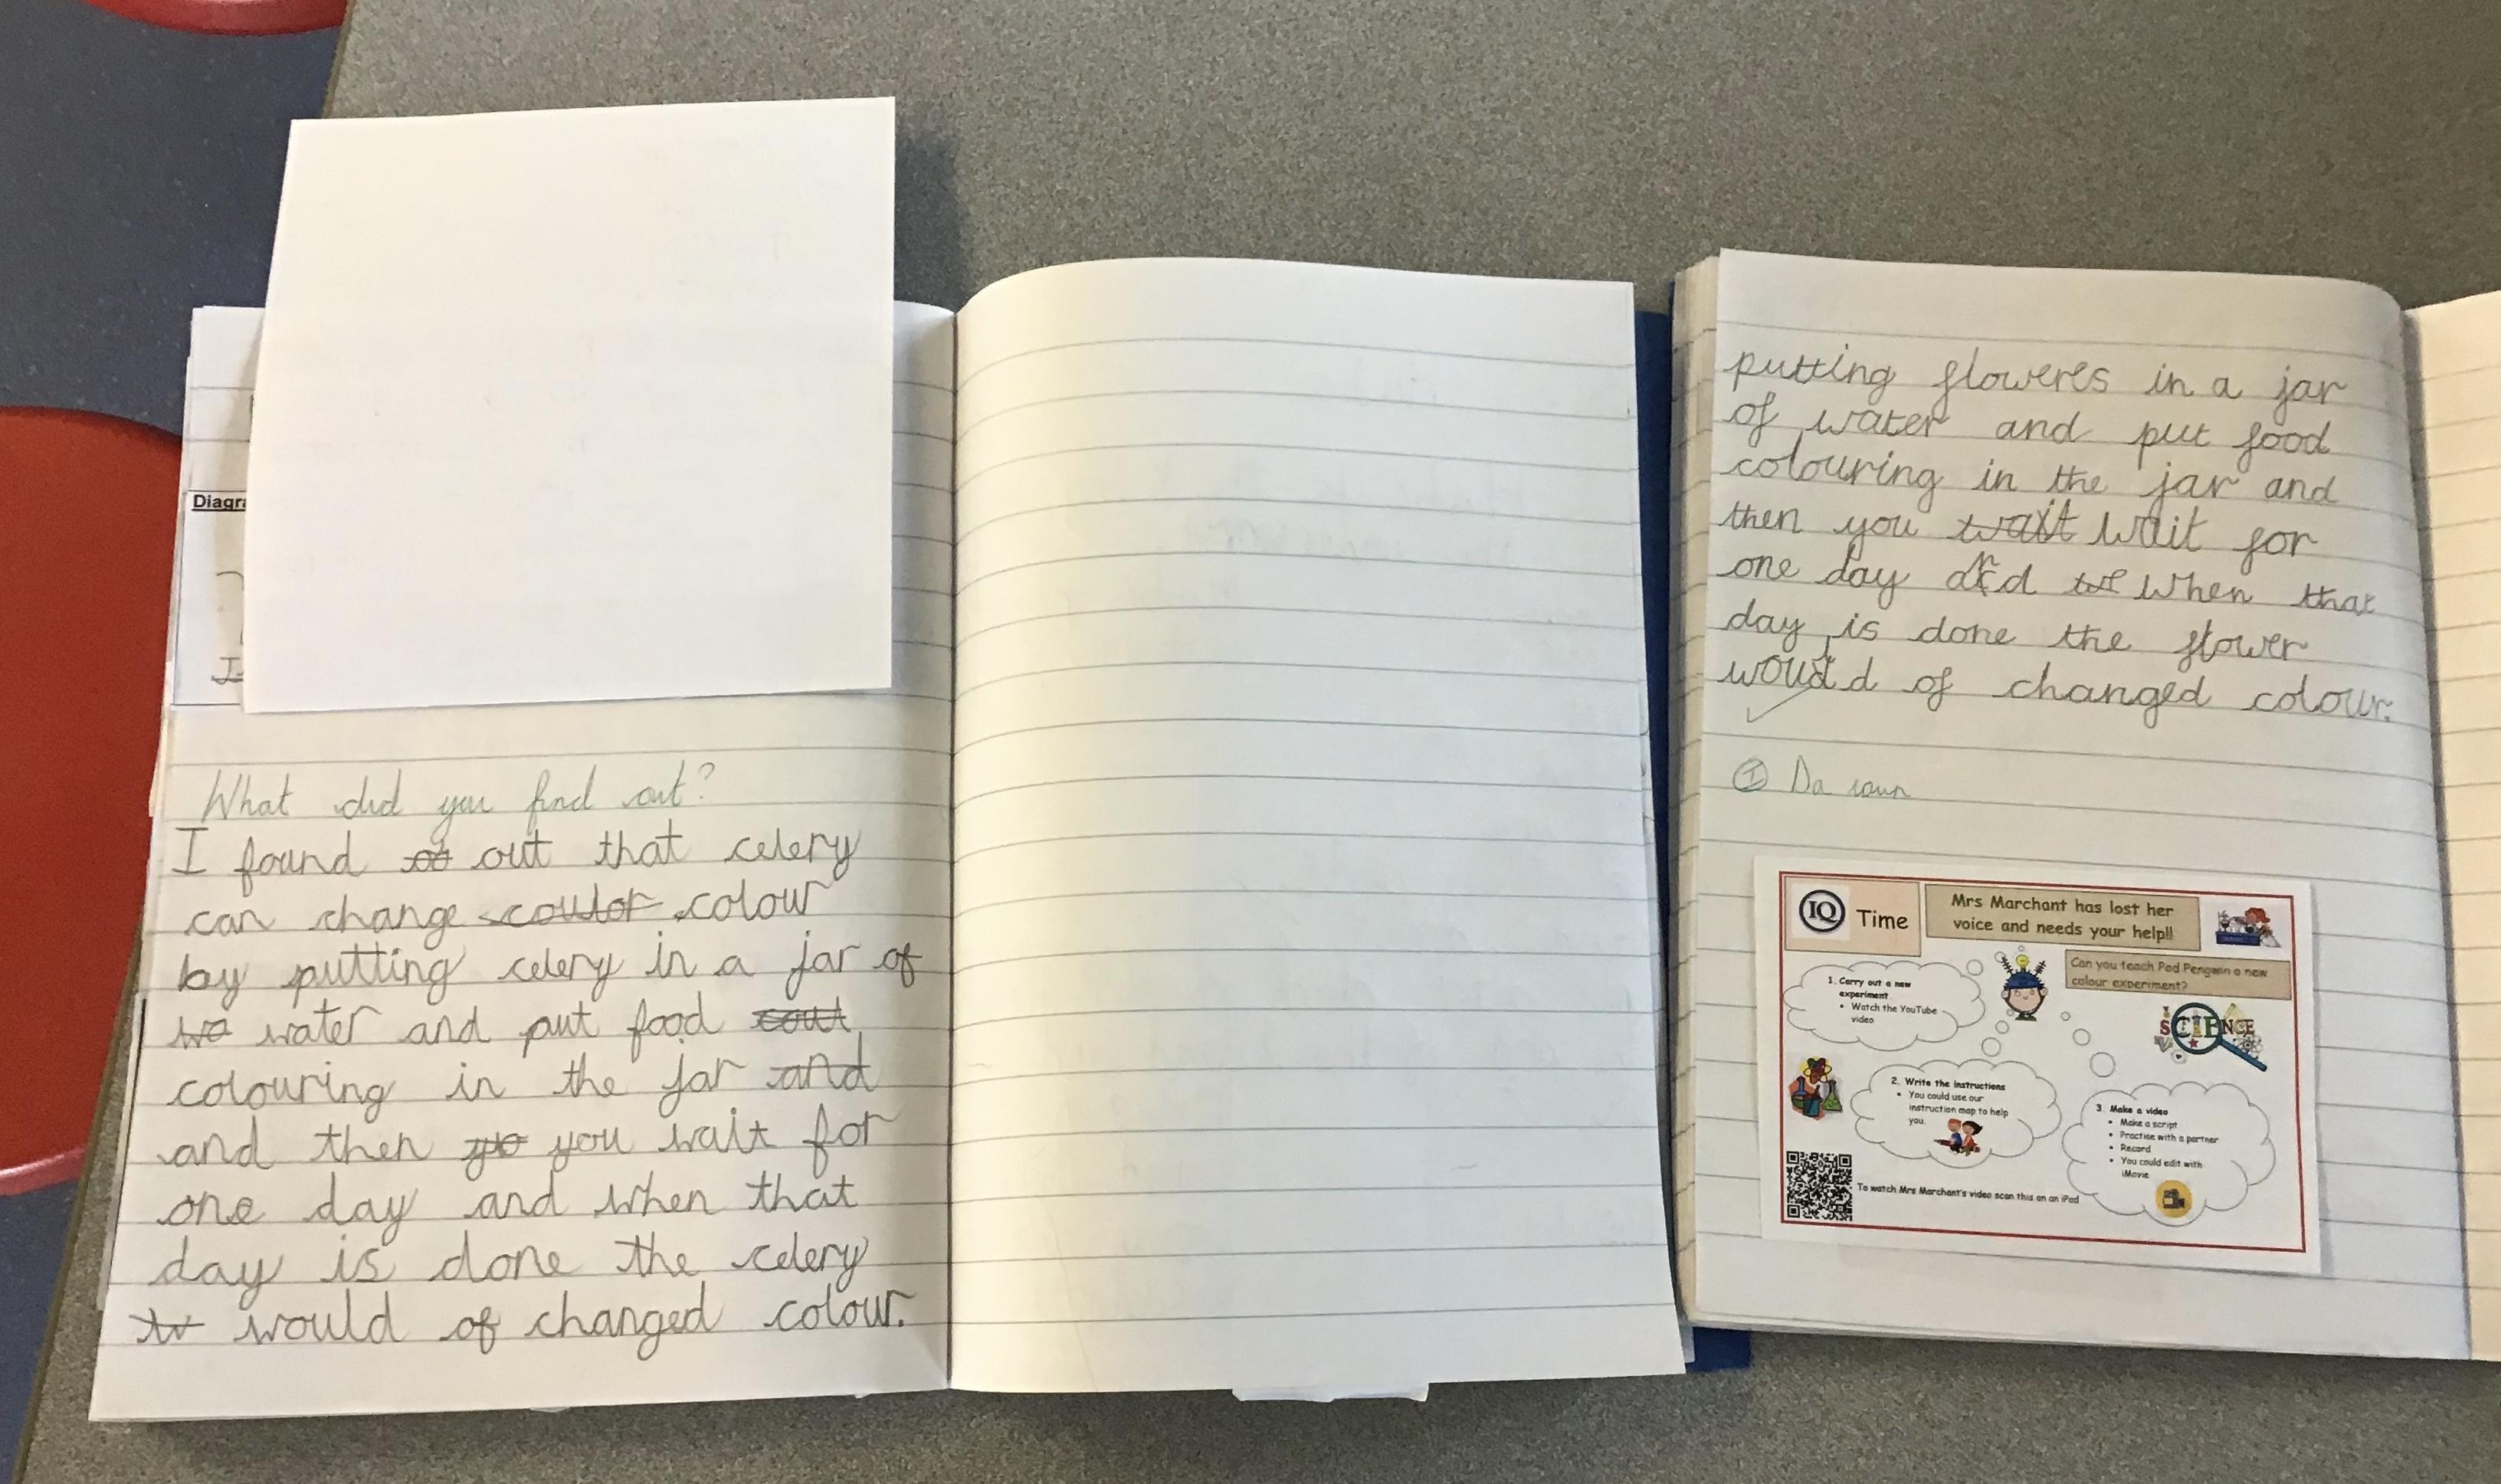 Diagra
What did you find out?
I found ot out that celery
can change coulor colour
by putting celery in a jar of
wa water and put food cout
colouring in the jar and
and then yuo you wait for
one day and when that
day is done the celery
w would of changed colour.
putting floweres in a jar
of water and put food
colouring in the jar and
then you wait wait for
one day and when that
day is done the flower
would of changed colour.
I
IQ Time
Mrs Marchant has lost her
voice and needs your help!!
Can you teach Pod Pengwin a new
colour experiment?
1. Carry out a new
experiment
• Watch the YouTube
video
SCIENCE
2. Write the instructions
• You could use our
instruction map to help
you.
3. Make a video
• Make a script
• Practise with a partner
• Record
• You could edit with
iMovie
To watch Mrs Marchant's video scan this on an iPad